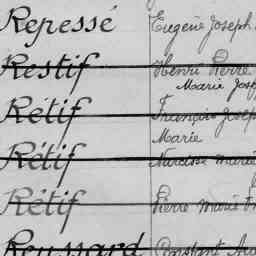 Repessé Eugène Joseph
Restif Henri Pierre
Marie Jos
Rétif François Josep
Marie
Rétif Narcisse Marie
Rétif Pierre Marie Fr
Reussard Constant Au